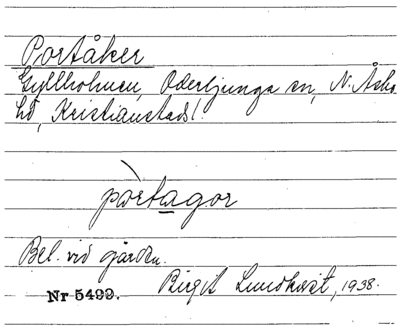 Portåker
Gyllholmen, Oderljunga sn, N. Åsbo
hd, Kristianstads l.
pòrtagor
Bel. vid gården.
Birgit Lundkvist, 1938.
Nr 5499.